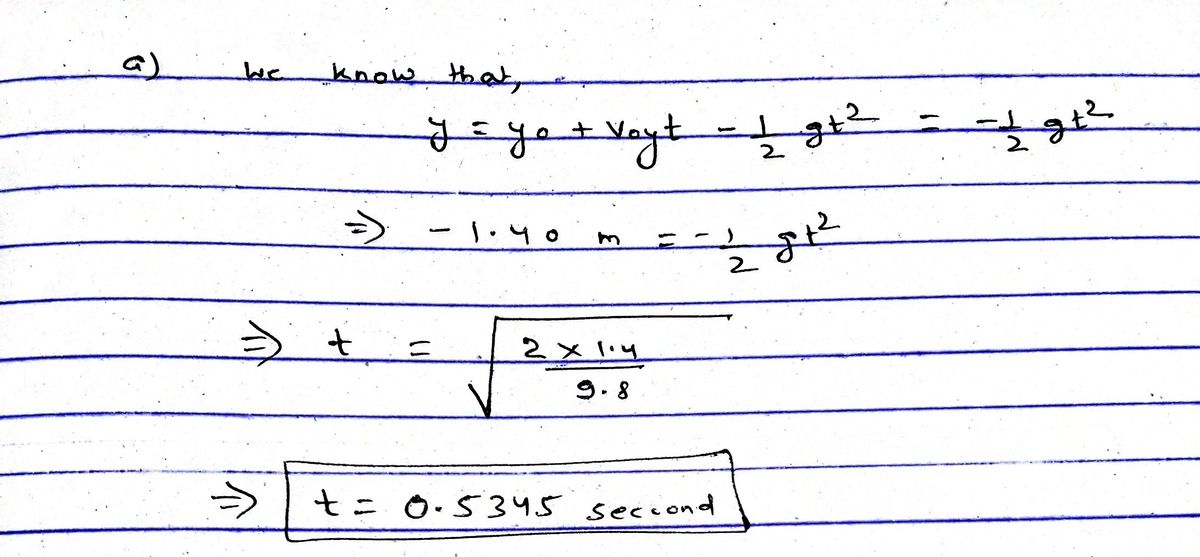 a) We know that,
y = y0 + Voyt - 1/2 gt² = -1/2 gt²
⇒ - 1.40 m = - 1/2 gt²
⇒ t = √(2 × 1.4 / 9.8)
⇒ t = 0.5345 seccond